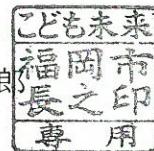 郎
こども未来
福岡市
長之印
専用